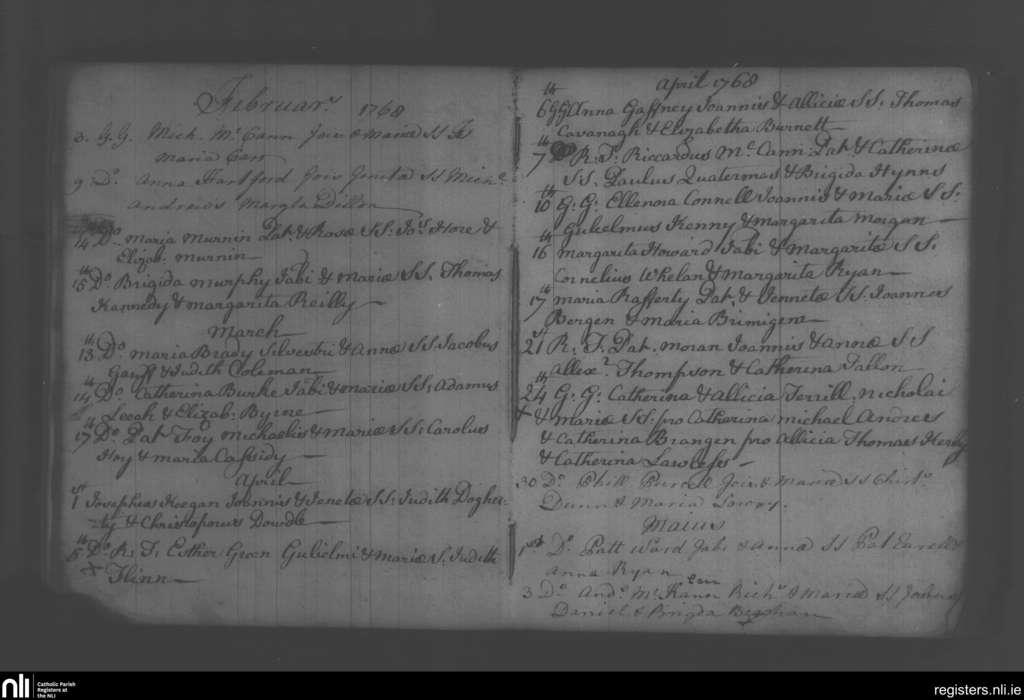 Februar.y 1768
3. G.G. Mich. Mc Cann Jois & Maria SS Js
Maria Carr
9 Do. Anna Hartford Jois Jeneta SS Mich.
Andrews Margta Dillon
14 Do. Maria Murnin Pat. & Rosæ SS. Jos. Hore &
Elizab: Murnin
15 Do. Brigida Murphy Jabi & Mariæ SS. Thomas
Kannedy & Margarita Reilly
March
13 Do. Maria Brady Silvestri & Annæ SS. Jacobus
Ganff & Judith Coleman
14 Do. Catherina Burke Jabi & Mariæ SS: Adamus
Leegh & Elizab: Byrne
17 Do. Pat Foy Michaelis & Mariæ SS: Carolus
Hoy & Maria Cassidy
April
1st Josephus Keegan Joannis & Jenetæ SS: Judith Dogher=
=ty & Christoporus Dowdle
5th Do. R: F: Esther Green Gulielmi & Mariæ S: Judith
+ Flinn
April 1768
6th GG Anna Gaffney Joannis & Alliciæ SS: Thomas
Cavanagh & Elizabetha Burnett
7th R: F: Riccardus Mc Cann Pat & Catherinæ
SS: Paulus Quatermas & Brigida Hynns
10th G: G: Ellenora Connell Joannis & Mariæ SS:
Gulielmus Kenny & Margarita Morgan
16th Margarita Howard Jabi & Margaritæ SS.
Cornelius Whelan & Margarita Ryan
17th Maria Rafferty Pat. & Jennetæ SS. Joannes
Bergen & Maria Brimigem
21st R: F: Pat. Moran Joannis & Annæ SS
Allexr. Thompson & Catherina Fallon
24th G: G: Catherina & Allicia Terrill, Nicholai
+ & Mariæ SS: pro Catherina Michael Andres
& Catherina Brangen pro Allicia Thomas Henly
& Catherina Lawless
30 Do. Phill Purcell Jois & Maria SS Christ.
Dunn & Maria Lowry.
Maius
1st Do. Patt Ward Jabi & Anna SS Pat Farrell &
Anna Ryan
3 Do. Andw. Mc Kann Richd. & Maria SS
Daniel & Brigda
nli
Catholic Parish
Registers at
the NLI
registers.nli.ie